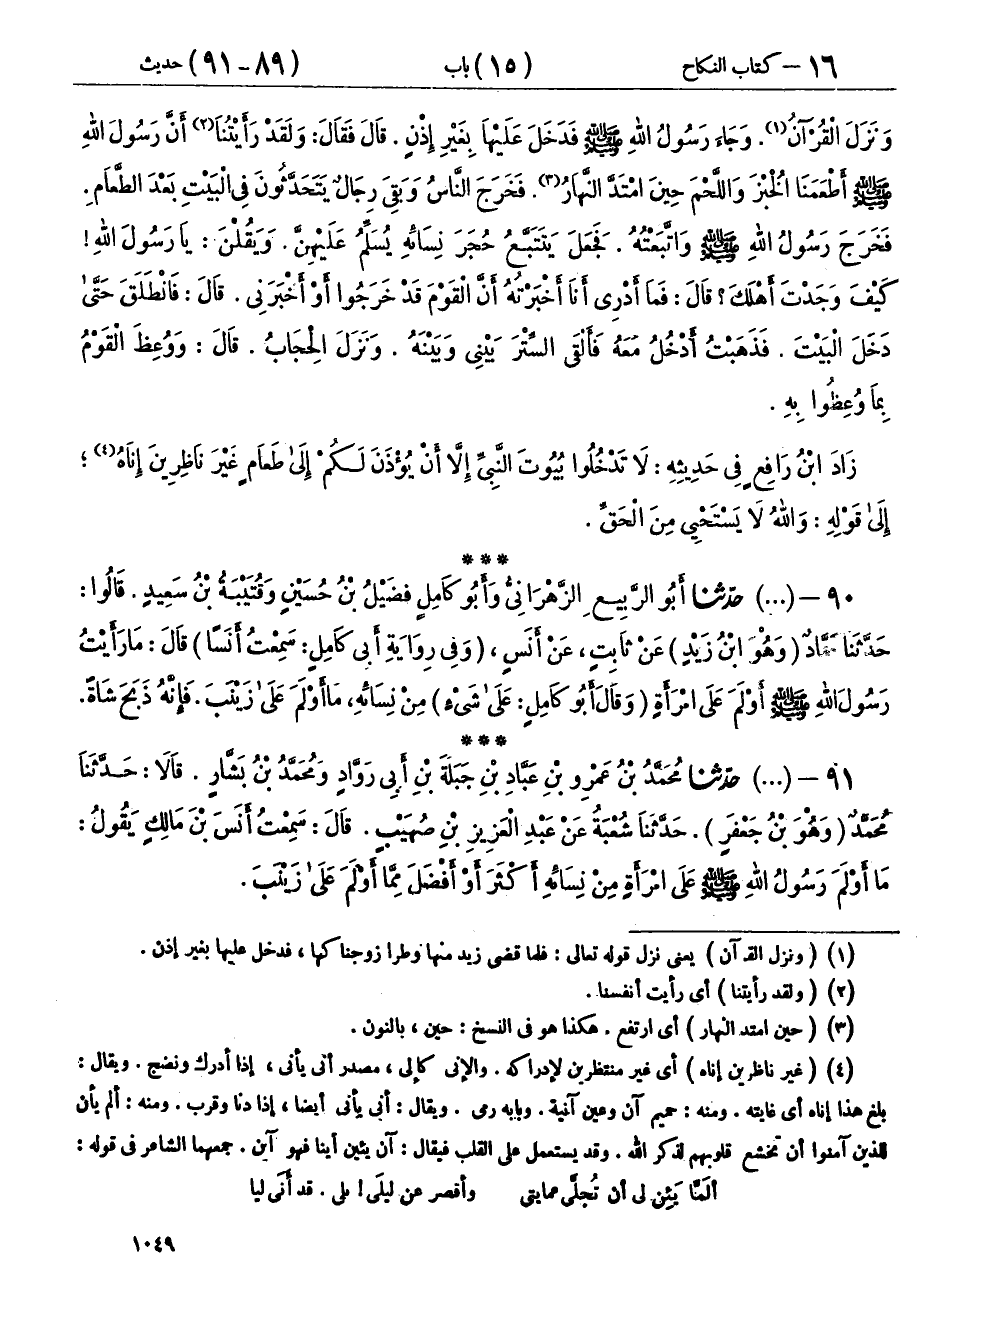 ١٦ – كتاب النكاح (١٥) باب (٨٩ – ٩١) حديث
وَنَزَلَ الْقُرْآنُ(١). وَجَاءَ رَسُولُ اللهِ ﷺ فَدَخَلَ عَلَيْهَا بِغَيْرِ إِذْنٍ. قَالَ فَقَالَ: وَلَقَدْ رَأَيْتُنَا(٢) أَنَّ رَسُولَ اللهِ
ﷺ أَطْعَمَنَا الْخُبْزَ وَاللَّحْمَ حِينَ امْتَدَّ النَّهَارُ(٣). فَخَرَجَ النَّاسُ وَبَقِيَ رِجَالٌ يَتَحَدَّثُونَ فِي الْبَيْتِ بَعْدَ الطَّعَامِ.
فَخَرَجَ رَسُولُ اللهِ ﷺ وَاتَّبَعْتُهُ. فَجَعَلَ يَتَتَبَّعُ حُجَرَ نِسَائِهِ يُسَلِّمُ عَلَيْهِنَّ. وَيَقُلْنَ: يَا رَسُولَ اللهِ!
كَيْفَ وَجَدْتَ أَهْلَكَ؟ قَالَ: فَمَا أَدْرِي أَنَا أَخْبَرْتُهُ أَنَّ الْقَوْمَ قَدْ خَرَجُوا أَوْ أَخْبَرَنِي. قَالَ: فَانْطَلَقَ حَتَّى
دَخَلَ الْبَيْتَ. فَذَهَبْتُ أَدْخُلُ مَعَهُ فَأَلْقَى السِّتْرَ بَيْنِي وَبَيْنَهُ. وَنَزَلَ الْحِجَابُ. قَالَ: وَوُعِظَ الْقَوْمُ
بِمَا وُعِظُوا بِهِ.
زَادَ ابْنُ رَافِعٍ فِي حَدِيثِهِ: لَا تَدْخُلُوا بُيُوتَ النَّبِيِّ إِلَّا أَنْ يُؤْذَنَ لَكُمْ إِلَى طَعَامٍ غَيْرَ نَاظِرِينَ إِنَاهُ(٤)؛
إِلَى قَوْلِهِ: وَاللهُ لَا يَسْتَحْيِي مِنَ الْحَقِّ.
***
٩٠ – (...) حدّثنا أَبُو الرَّبِيعِ الزَّهْرَانِيُّ وَأَبُو كَامِلٍ فُضَيْلُ بْنُ حُسَيْنٍ وَقُتَيْبَةُ بْنُ سَعِيدٍ. قَالُوا:
حَدَّثَنَا حَمَّادٌ (وَهُوَ ابْنُ زَيْدٍ) عَنْ ثَابِتٍ، عَنْ أَنَسٍ، (وَفِي رِوَايَةِ أَبِي كَامِلٍ: سَمِعْتُ أَنَسًا) قَالَ: مَا رَأَيْتُ
رَسُولَ اللهِ ﷺ أَوْلَمَ عَلَى امْرَأَةٍ (وَقَالَ أَبُو كَامِلٍ: عَلَى شَيْءٍ) مِنْ نِسَائِهِ، مَا أَوْلَمَ عَلَى زَيْنَبَ. فَإِنَّهُ ذَبَحَ شَاةً.
***
٩١ – (...) حدّثنا مُحَمَّدُ بْنُ عَمْرِو بْنِ عَبَّادِ بْنِ جَبَلَةَ بْنِ أَبِي رَوَّادٍ وَمُحَمَّدُ بْنُ بَشَّارٍ. قَالَا: حَدَّثَنَا
مُحَمَّدٌ (وَهُوَ بْنُ جَعْفَرٍ). حَدَّثَنَا شُعْبَةُ عَنْ عَبْدِ الْعَزِيزِ بْنِ صُهَيْبٍ. قَالَ: سَمِعْتُ أَنَسَ بْنَ مَالِكٍ يَقُولُ:
مَا أَوْلَمَ رَسُولُ اللهِ ﷺ عَلَى امْرَأَةٍ مِنْ نِسَائِهِ أَكْثَرَ أَوْ أَفْضَلَ مِمَّا أَوْلَمَ عَلَى زَيْنَبَ.
(١) (ونزل القرآن) يعنى نزل قوله تعالى: فلما قضى زيد منها وطرا زوجناكها، فدخل عليها بغير إذن.
(٢) (ولقد رأيتنا) أى رأيت أنفسنا.
(٣) (حين امتد النهار) أى ارتفع. هكذا هو فى النسخ: حين، بالنون.
(٤) (غير ناظرين إناه) أى غير منتظرين لإدراكه. والإنى كإلى، مصدر أنى يأنى، إذا أدرك ونضج. ويقال:
بلغ هذا إناه أى غايته. ومنه: حميم آن وعين آنية. وبابه رمى. ويقال: أنى يأنى أيضا، إذا دنا وقرب. ومنه: ألم يأن
للذين آمنوا أن تخشع قلوبهم لذكر الله. وقد يستعمل على القلب فيقال: آن يئين أينا فهو آين. جمعهما الشاعر فى قوله:
ألمَّا يَئِن لى أن تُجلَّى عمايتى وأقصر عن ليلَى! بلى. قد أَنَى ليا
١٠٤٩